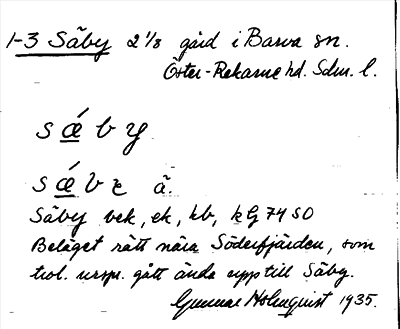 1-3 Säby 2 1/8 gård i Barva sn.
Öster-Rekarne hd. Sdm. l.
s ǽ b y
s ǽ b ɛ ä.
Säby bek, ek, kb, kG 74 SO
Beläget rätt nära Söderfjärden, som
trol. urspr. gått ända upp till Säby.
Gunnar Holmquist 1935.